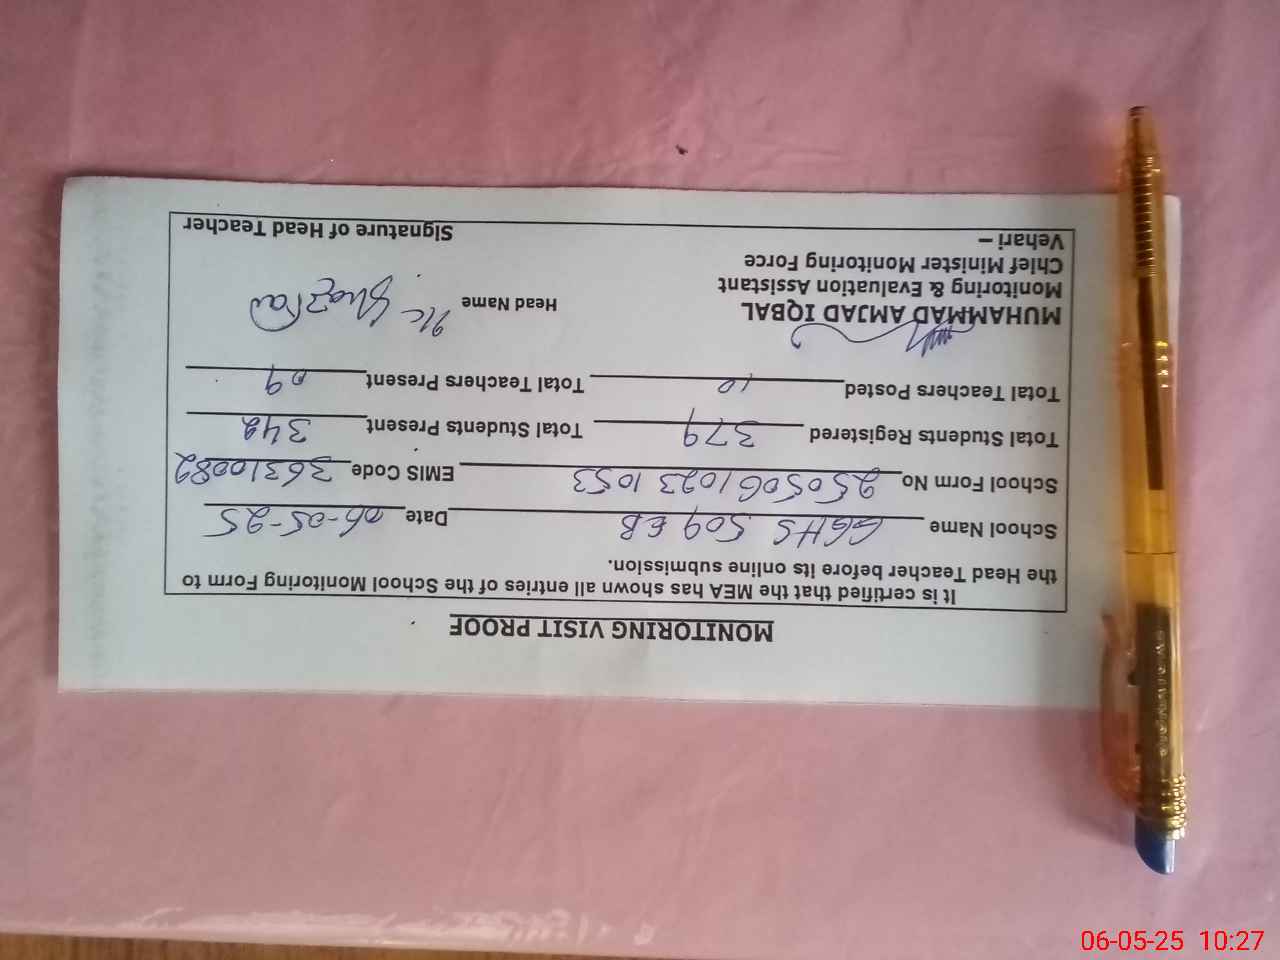 MONITORING VISIT PROOF
It is certified that the MEA has shown all entries of the School Monitoring Form to
the Head Teacher before its online submission.
School Name GGHS 509 EB Date 06-05-25
School Form No 2505061023 1053 EMIS Code 36310082
Total Students Registered 379 Total Students Present 342
Total Teachers Posted 10 Total Teachers Present 09
MUHAMMAD AMJAD IQBAL Head Name
Monitoring & Evaluation Assistant
Chief Minister Monitoring Force
Vehari – Signature of Head Teacher
06-05-25 10:27